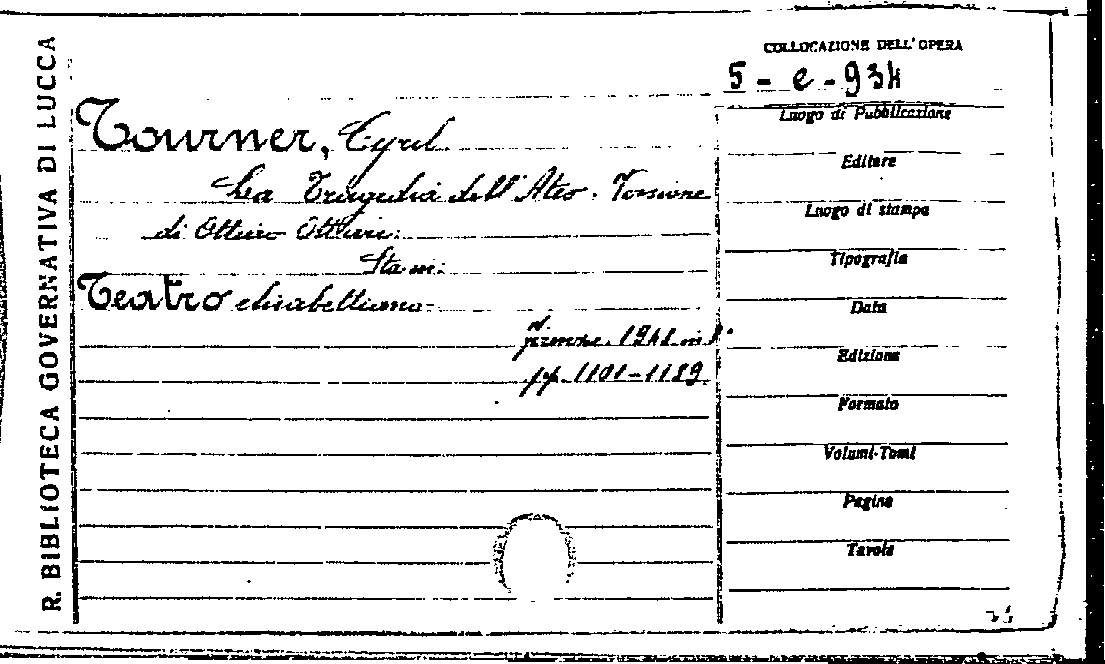 R. BIBLIOTECA GOVERNATIVA DI LUCCA
COLLOCAZIONE DELL'OPERA
5 - e - 934
Tourner, Cyril
La Tragedia dell'Ateo. Versione
di Ottiero Ottieri.
Sta in:
Teatro elisabettiano
Firenze. 1948 in 8°
pp. 1101-1189
Luogo di Pubblicazione
Editore
Luogo di stampa
Tipografia
Data
Edizione
Formato
Volumi-Tomi
Pagine
Tavole